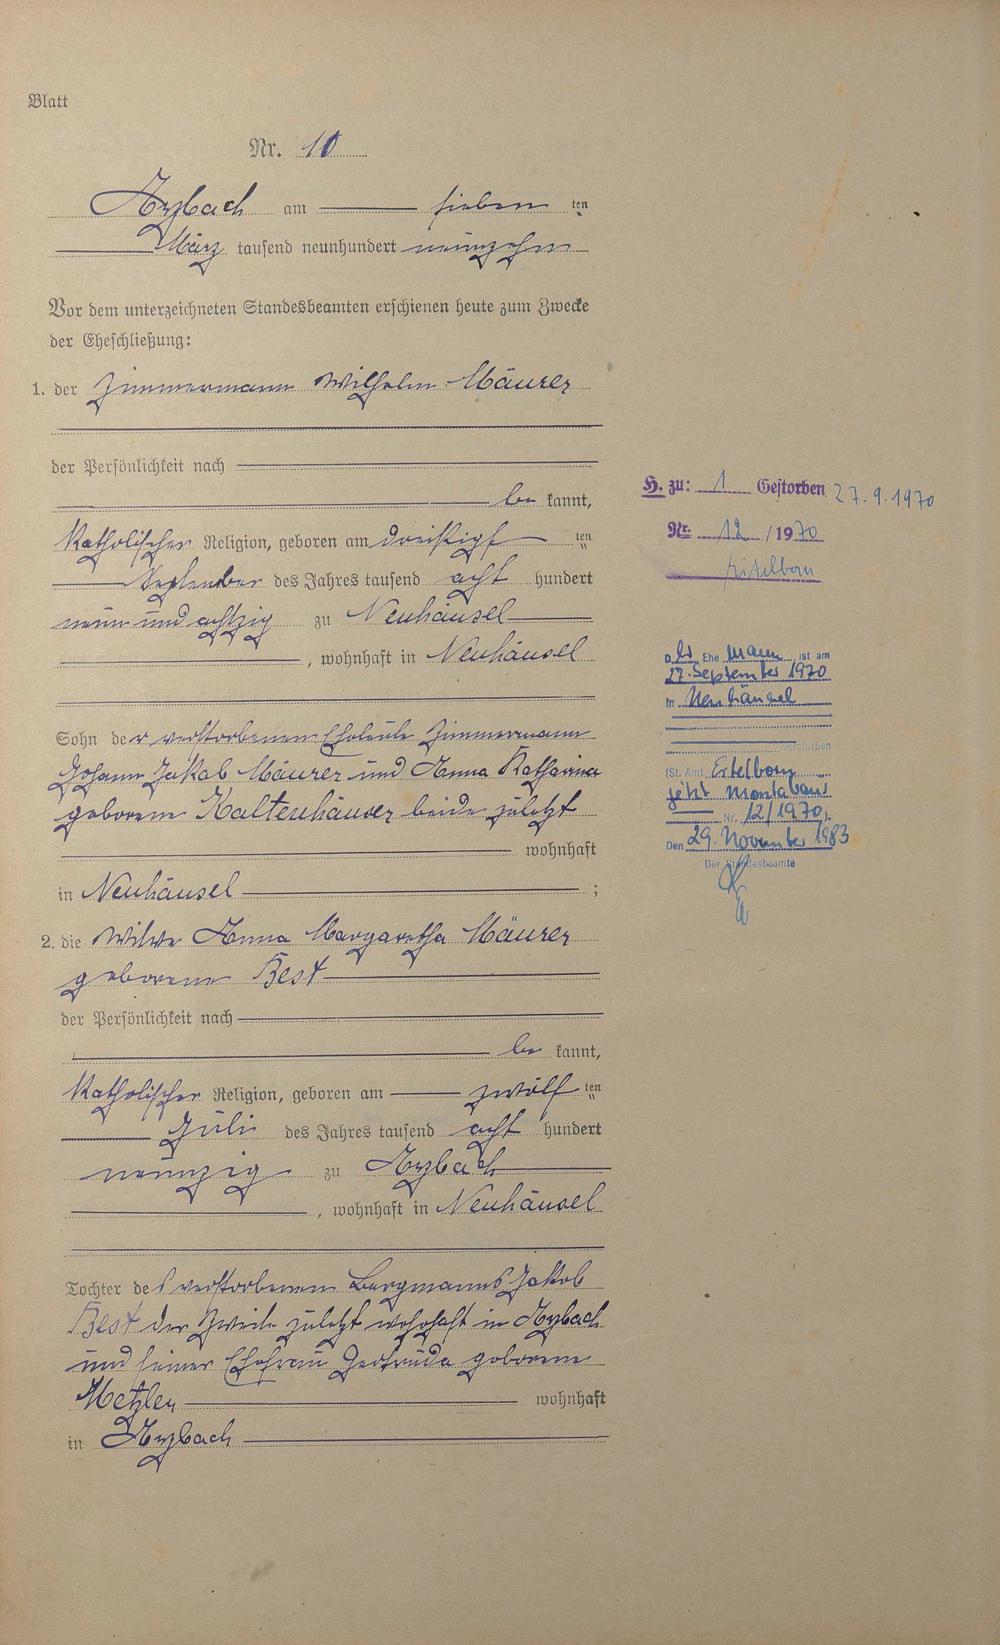 Blatt
Nr. 10
Arzbach am sieben ten
März tausend neunhundert neunzehn
Vor dem unterzeichneten Standesbeamten erschienen heute zum Zwecke
der Eheschließung:
1. der Zimmermann Wilhelm Mäurer
der Persönlichkeit nach
be kannt,
katholischer Religion, geboren am dreißigs ten
September des Jahres tausend acht hundert
neun und achtzig zu Neuhäusel
, wohnhaft in Neuhäusel
Sohn der verstorbenen Eheleute Zimmermann
Johann Jakob Mäurer und Anna Katharina
geborene Kaltenhäuser beide zuletzt
wohnhaft
in Neuhäusel ;
2. die Witwe Anna Margaretha Mäurer
geborene Best
der Persönlichkeit nach
be kannt,
katholischer Religion, geboren am zwölf ten
Juli des Jahres tausend acht hundert
neunzig zu Arzbach
, wohnhaft in Neuhäusel
Tochter des verstorbenen Bergmanns Jakob
Best der Zweite zuletzt wohnhaft in Arzbach
und seiner Ehefrau Gertruda geborene
Metzler wohnhaft
in Arzbach
H. zu: 1 Gestorben 27.9.1970
Nr. 12 /1970
Eitelborn
Der Ehe mann ist am
27. September 1970
in Neuhäusel
verstorben
(St. Amt Eitelborn
jetzt Montabaur
Nr. 12/1970).
Den 29. November 1983
Der Standesbeamte